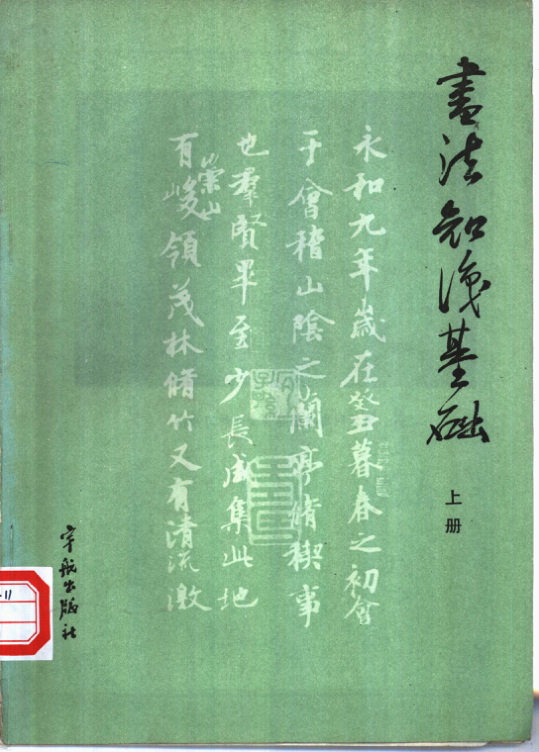 書法知识基础
上册
永和九年歲在癸丑暮春之初會
于會稽山陰之蘭亭脩稧事
也羣賢畢至少長咸集此地
有崇山峻領茂林脩竹又有清流激
宇航出版社
-11